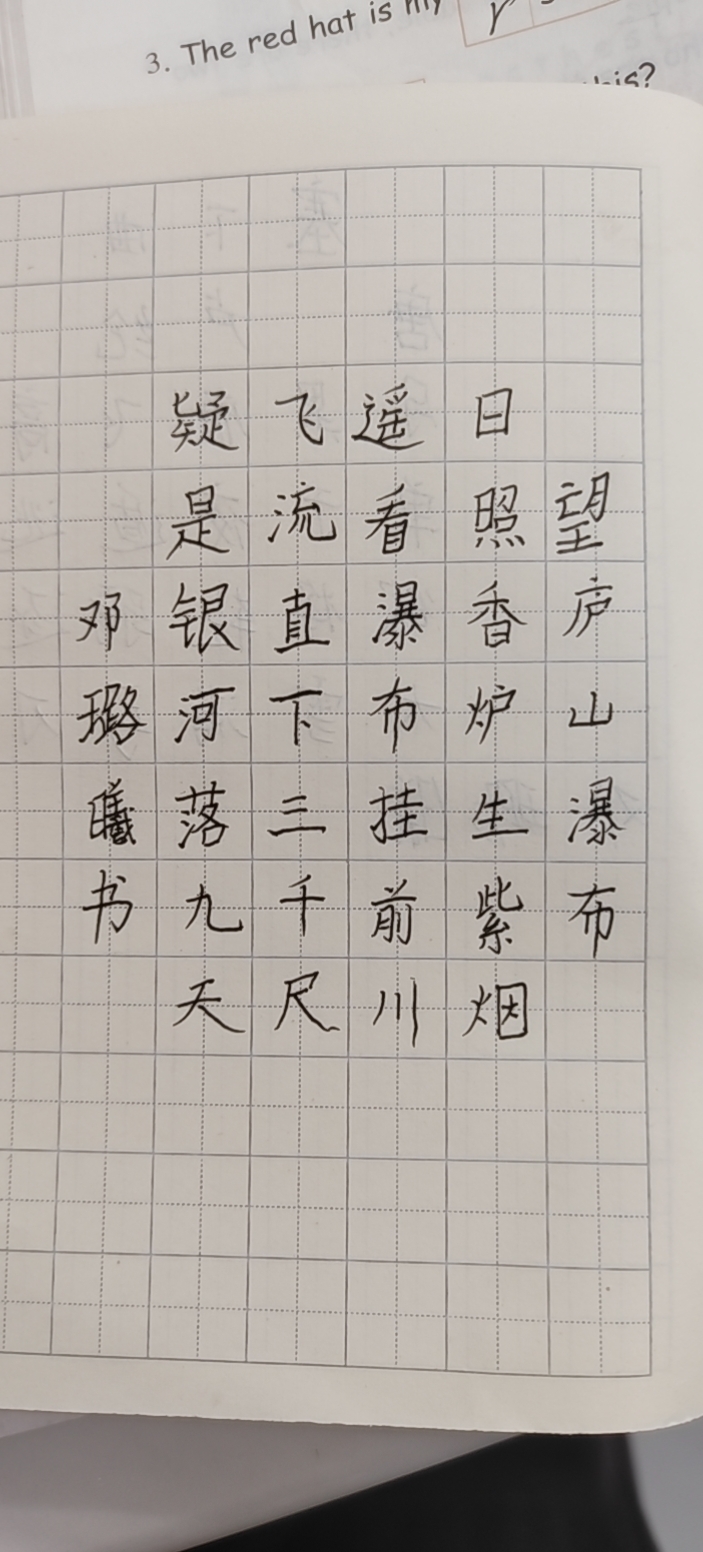 3. The red hat is my
his?
望庐山瀑布
日照香炉生紫烟
遥看瀑布挂前川
飞流直下三千尺
疑是银河落九天
邓璐曦书